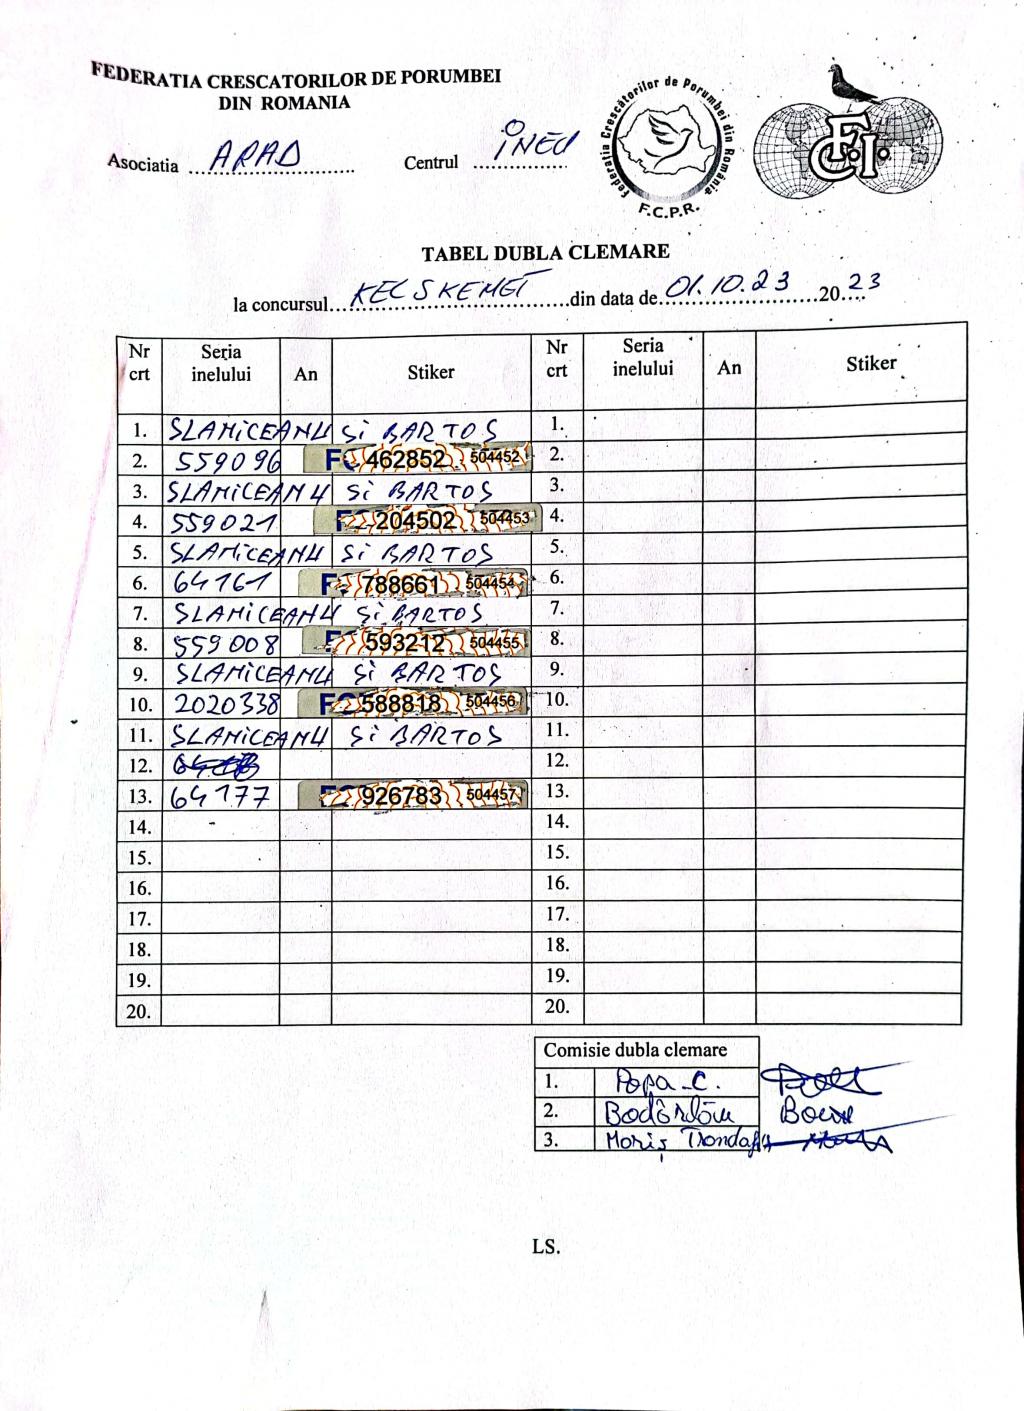 FEDERATIA CRESCATORILOR DE PORUMBEI
DIN ROMANIA
Asociatia ARAD Centrul INEU
Federatia Crescătorilor de Porumbei din România
F.C.P.R.
F.C.I.
TABEL DUBLA CLEMARE
la concursul KECSKEMET din data de 01.10.23 2023
Nr crt Seria inelului An Stiker Nr crt Seria inelului An Stiker
1. SLAMICEANU SI BARTOS 1.
2. 559096 462852 504452 2.
3. SLAMICEANU SI BARTOS 3.
4. 559021 204502 504453 4.
5. SLAMICEANU SI BARTOS 5.
6. 64161 788661 504454 6.
7. SLAMICEANU SI BARTOS 7.
8. 559008 593212 504455 8.
9. SLAMICEANU SI BARTOS 9.
10. 2020338 588818 504456 10.
11. SLAMICEANU SI BARTOS 11.
12. 12.
13. 64177 926783 504457 13.
14. 14.
15. 15.
16. 16.
17. 17.
18. 18.
19. 19.
20. 20.
Comisie dubla clemare
1. Popa C.
2.
3. Moriș
LS.